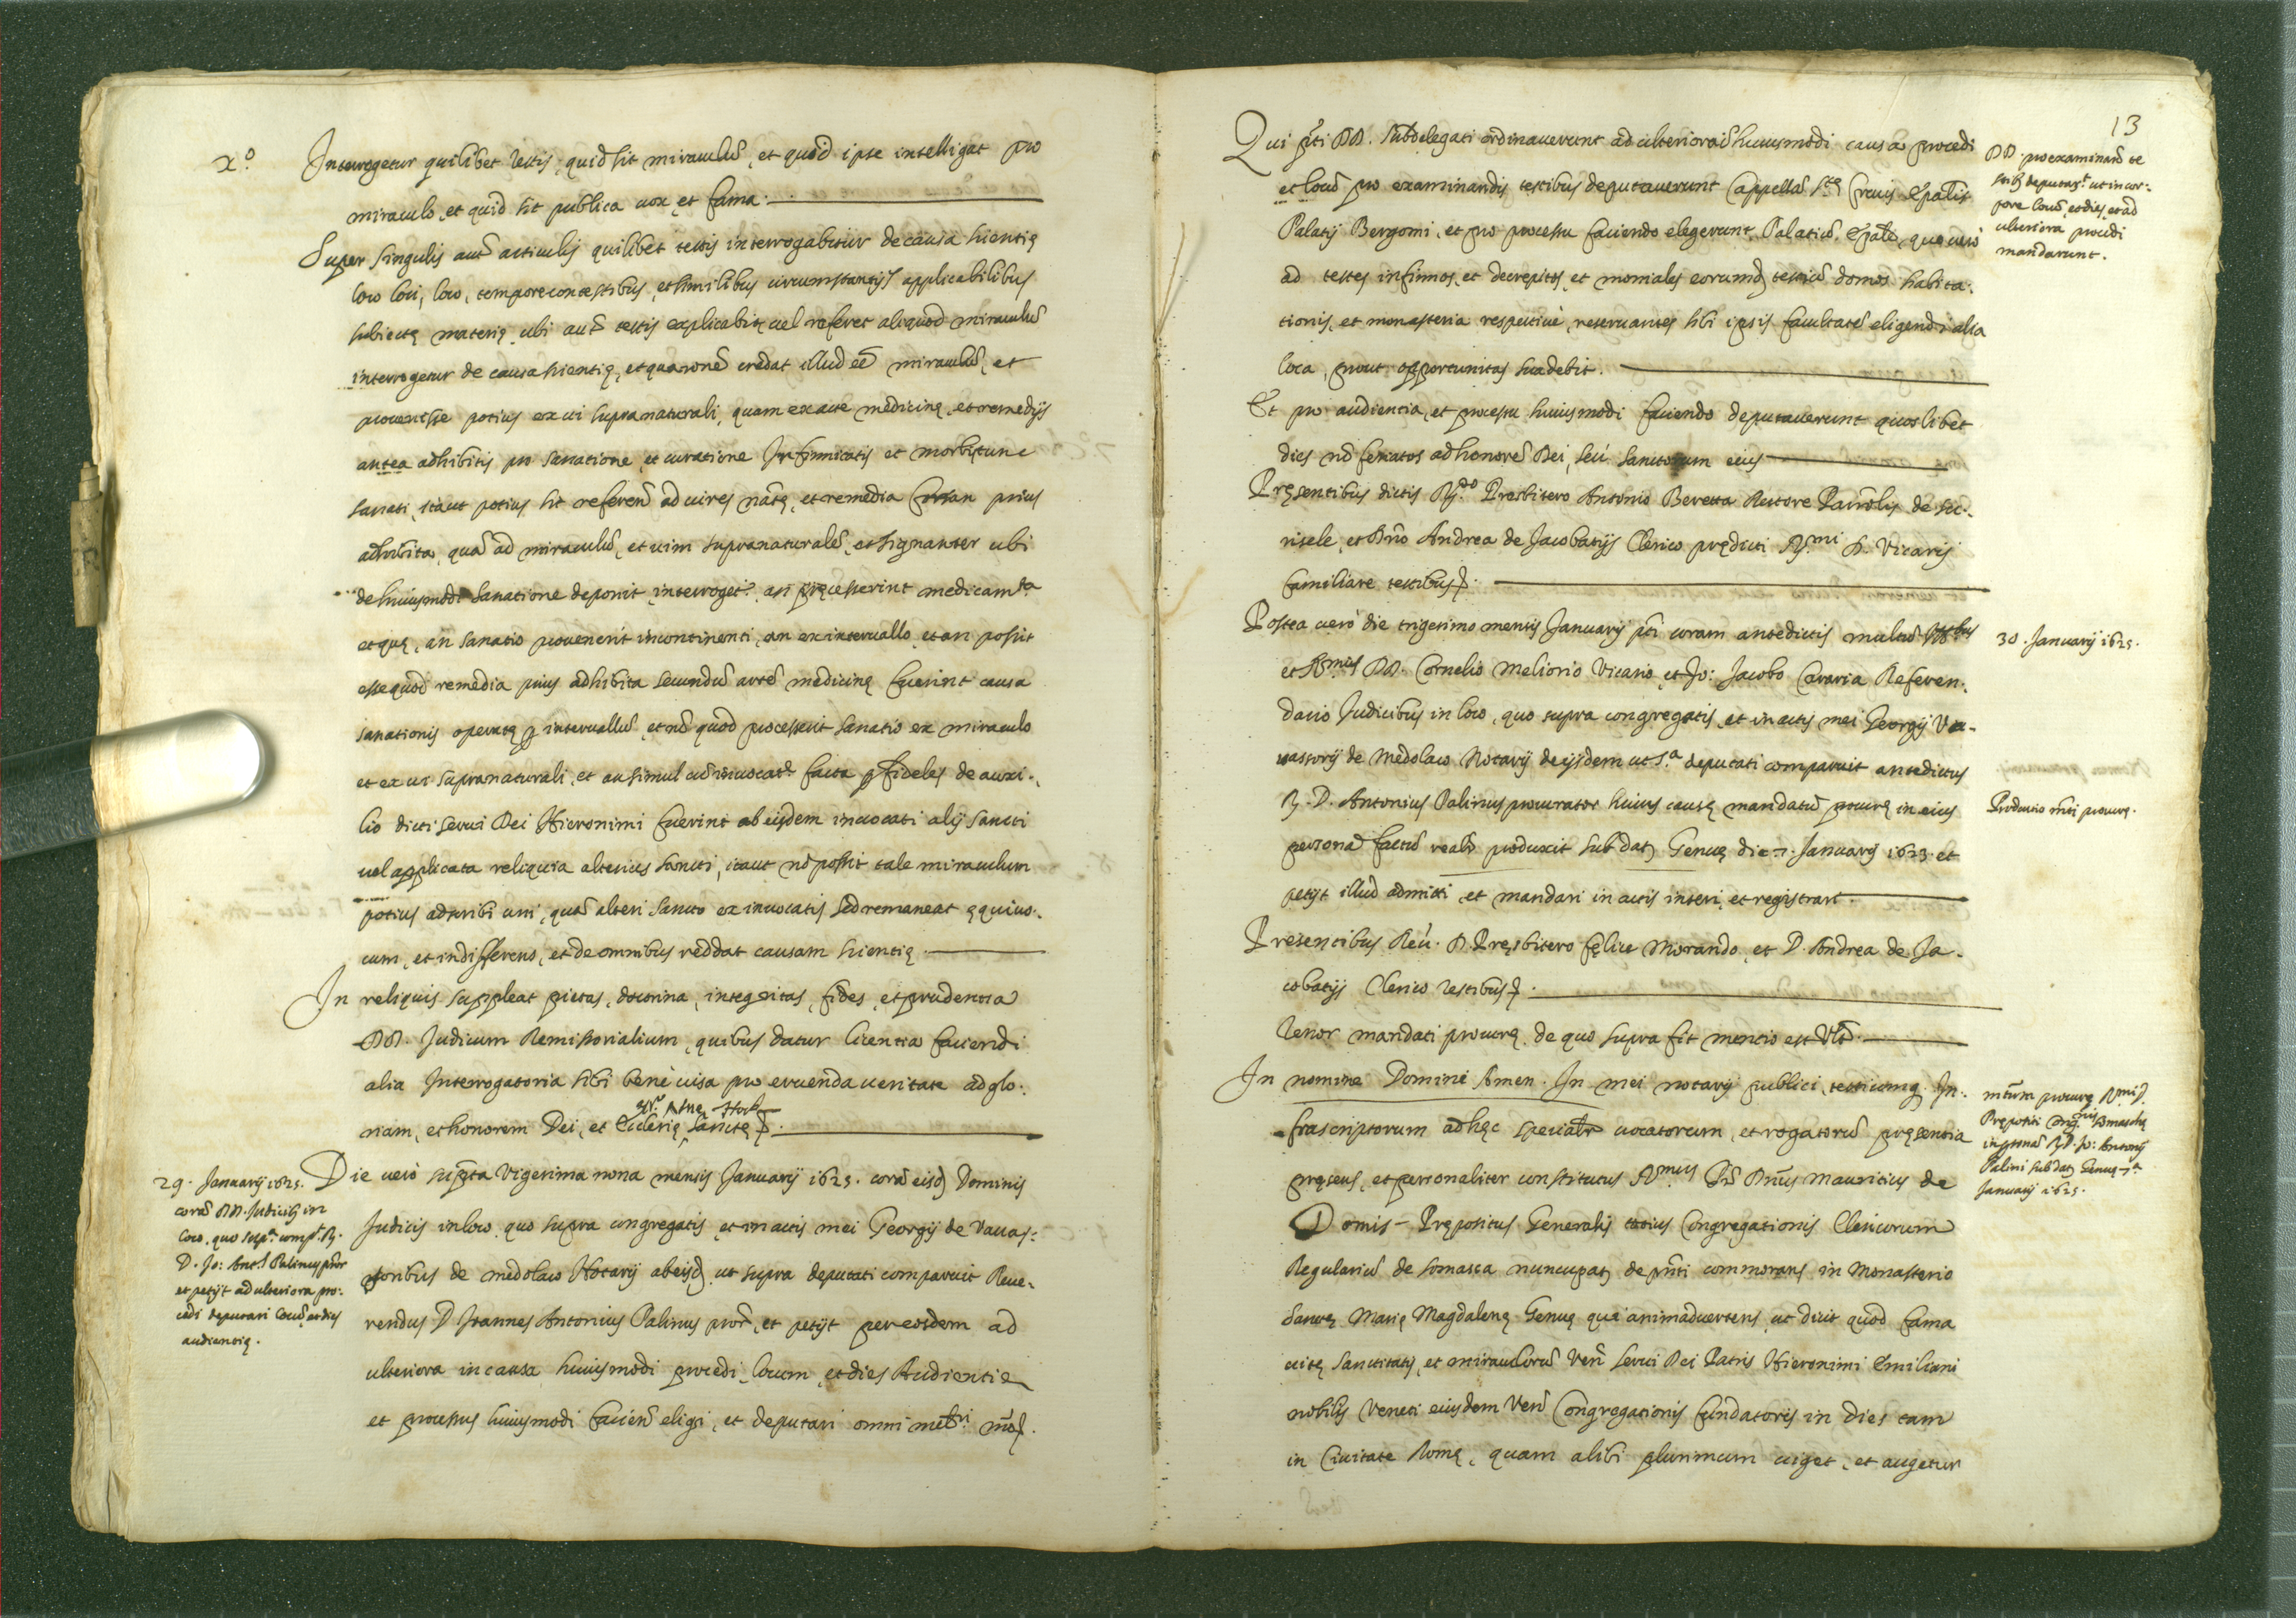 X.o Interrogetur quilibet testis, quid sit miraculũ, et quid ipse intelligat pro
miraculo, et quid sit publica vox, et fama.
Super singulis autẽ articulis quilibet testis interrogabitur de causa scientię
loco loci, loco, tempore contestibus, et similibus circumstantijs applicabilibus
subiectę materię, ubi autẽ testis explicabit, uel referet aliquod miraculũ
interrogetur de causa scientię, et qua ronẽ credat illud eẽ miraculũ, et
prouenisse potius ex ui supranaturali, quam ex arte medicinę, et remedijs
antea adhibitis pro sanatione, et curatione Infirmitatis et morbi tunc
sanati, itaut potius sit referenḍ ad uires natę, et remedia forsan prius
adhibita, quã ad miraculũ, et uim supranaturalẽ, et signanter ubi
de huiusmodi sanatione deponit, interroget.r an pręcesserint medicam.ta
et quę, an sanatio prouenerit incontinenti, an ex interuallo, et an possit
esse quod remedia prius adhibita secundũ artẽ medicinę fuerint causa
sanationis operatę p interuallũ, et nõ quod processerit sanatio ex miraculo
et ex ui supranaturali, et an simul cũ inuocat.e facta p fideles de auxi-
lio dicti serui Dei Hieronimi fuerint ab eisdem inuocati alij sancti
uel applicata reliquia alterius sancti, itaut nõ possit tale miraculum
potius adscribi uni, quã alteri sancto ex inuocatis sed remaneat ęquiuo-
cum, et indifferens, et de omnibus reddat causam scientię.
In reliquis suppleat pietas, doctrina, integritas, fides, et prudentia
DD. Judicum Remissorialium, quibus datur licentia faciendi
alia Interrogatoria sibi benè uisa pro eruenda ueritate ad glo-
riam, et honorem Dei, et Ecclesię Sanctę
29. Januarij 1625.
corã DD. Judicib9 in
loco, quo sup.a comp.t R.
D. Jo: Ant.s Palinus pror
et petijt ad ulteriora pro-
cedi deputari locũ, et dies
audientię.
Die uero supta Vigesima nona mensis Januarij 1625. corã eisd Dominis
Judicis in loco, quo supra congregatis, et in actis mei Georgij de Vauas-
soribus de medolaco Notarij ab eisd, ut supra deputati comparuit Reue-
rendus D Joannes Antonius Palinus pror, et petijt per eosdem ad
ulteriora in causa huiusmodi procedi, locum, et dies Audientię
et processus huiusmodi facienḍ eligi, et deputari omni meliri mõ.
13
Qui pti DD. Subdelegati ordinauerunt ad ulteriora huiusmodi causa procedi
et locũ pro examinandis testibus deputauerunt Cappellã S.tę Crucis Epalis
Palatij Bergomi, et pro processu faciendo elegerunt Palatiũ Epale, quo uero
ad testes infirmos, et decrepitos, et moniales eorumd testiũ domos habita-
tionis, et monasteria respectiuè, reseruantes sibi ipsis facultatẽ eligendi alia
loca, prout opportunitas suadebit.
DD. pro examinanḍ te
stib9 deputar.t ut in cor-
pore locũ, et dies, et ad
ulteriora procedi
mandarunt.
Et pro audientia, et processu huiusmodi faciendo deputauerunt quoslibet
dies nõ feriatos ad honorẽ Dei, seù sanctorum eius
Pręsentibus dictis R.do Presbitero Antonio Beretta Rectore Parrolis de Sor-
risele, et Dno Andrea de Jacobatijs Clerico prędicti R.mi D. Vicarij
familiare testibus.
Postea uerò die trigesimo mensis Januarij pti coram antedictis multũ
et R.mis DD. Cornelio Meliorio Vicario, et Jo: Jacobo Cararia Referen-
dario Judicibus in loco, quo supra congregatis, et in actis mei Georgij Va-
uassorij de Medolaco Notarij de ijsdem ut s.a deputati comparuit antedictus
R. D. Antonius Palinus procurator huius causę mandatũ procurę in eius
personã factũ realr produxit sub dat Genuę die 7. Januarij 1623. et
petijt illud admitti, et mandari in actis inseri, et registrari.
30. Januarij 1625.
Productio mti procurę.
Presentibus Reu. D. Pręsbitero Fęlice Morando, et D. Andrea de Ja-
cobatijs Clerico testibus.
Tenor mandati procurę, de quo supra fit mentio est Vlt.
In nomine Domini Amen. In mei notarij publici, testiumq. In-
frascriptorum ad hęc specialr uocatorum, et rogatorũ pręsentia
pręsens, et personaliter constitutus R.mus Pr Dnus Mauritius de
Domis Prępositus Generalis totius Congregationis Clericorum
Regulariũ de somasca nuncupat, de pnti commorans in Monasterio
Sanctę Marię Magdalenę Genuę qui animaduertens, ut dixit quod fama
uitę sanctitatis, et miraculorũ Venḍ serui Dei Patris Hieronimi Emiliani
nobilis Veneti eiusdem Venḍ Congregationis fundatoris in dies tam
in Ciuitate Romę, quam alibi plurimum uiget, et augetur
mtum procurę R.mi D.
Prępositi Cong.nis Somaschę
in personã R.D. Jo: Antonij
Palini sub dat Genuę 7.a
Januarij 1625.